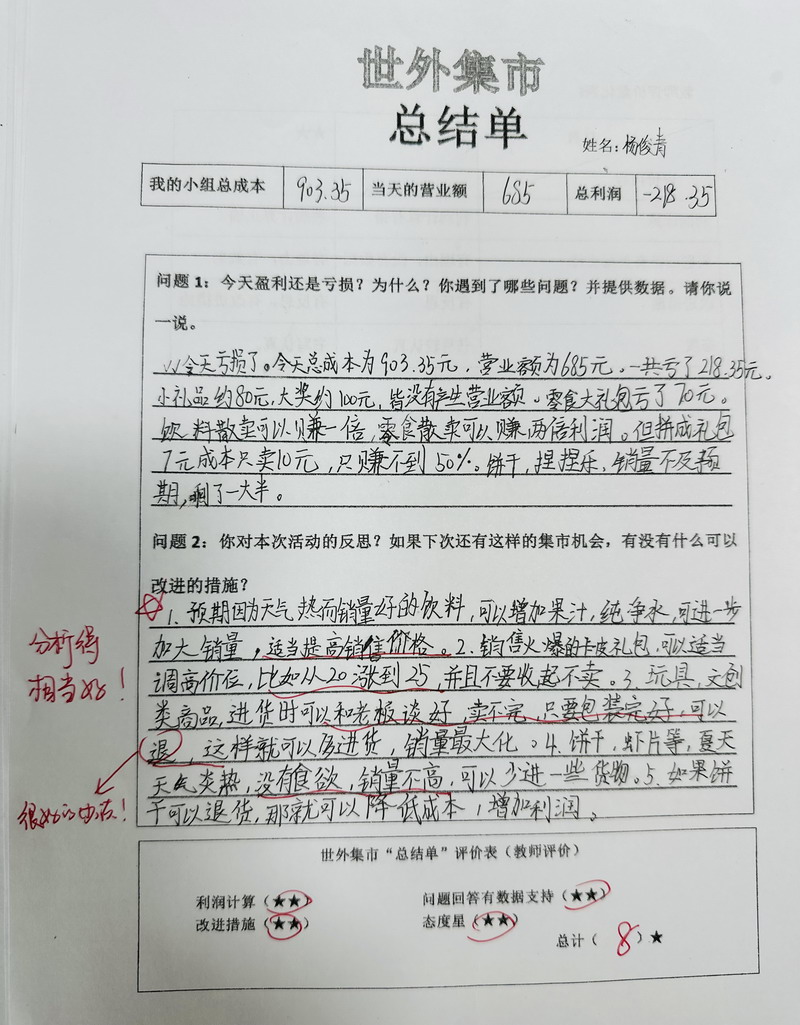 世外集市
总结单
姓名：杨俊青
我的小组总成本 903.35 当天的营业额 685 总利润 -218.35
问题 1：今天盈利还是亏损？为什么？你遇到了哪些问题？并提供数据。请你说
一说。
今天亏损了。今天总成本为903.35元，营业额为685元。一共亏了218.35元。
小礼品约80元，大奖约100元，皆没有产生营业额。零食大礼包亏了70元。
饮料散卖可以赚一倍，零食散卖可以赚两倍利润。但拼成礼包
7元成本只卖10元，只赚不到50%。饼干，捏捏乐，销量不及预
期，剩了一大半。
问题 2：你对本次活动的反思？如果下次还有这样的集市机会，有没有什么可以
改进的措施？
1. 预期因为天气热而销量好的饮料，可以增加果汁，纯净水，可进一步
加大销量，适当提高销售价格。2. 销售火爆的卡皮礼包，可以适当
调高价位，比如从20涨到25，并且不要收起不卖。3. 玩具，文创
类商品，进货时可以和老板谈好，卖不完，只要包装完好，可以
退，这样就可以多进货，销量最大化。4. 饼干，虾片等，夏天
天气炎热，没有食欲，销量不高，可以少进一些货物。5. 如果饼
干可以退货，那就可以降低成本，增加利润。
分析得
相当好！
很好的办法！
世外集市“总结单”评价表（教师评价）
利润计算（★★） 问题回答有数据支持（★★）
改进措施（★★） 态度星（★★）
总计（ 8 ）★